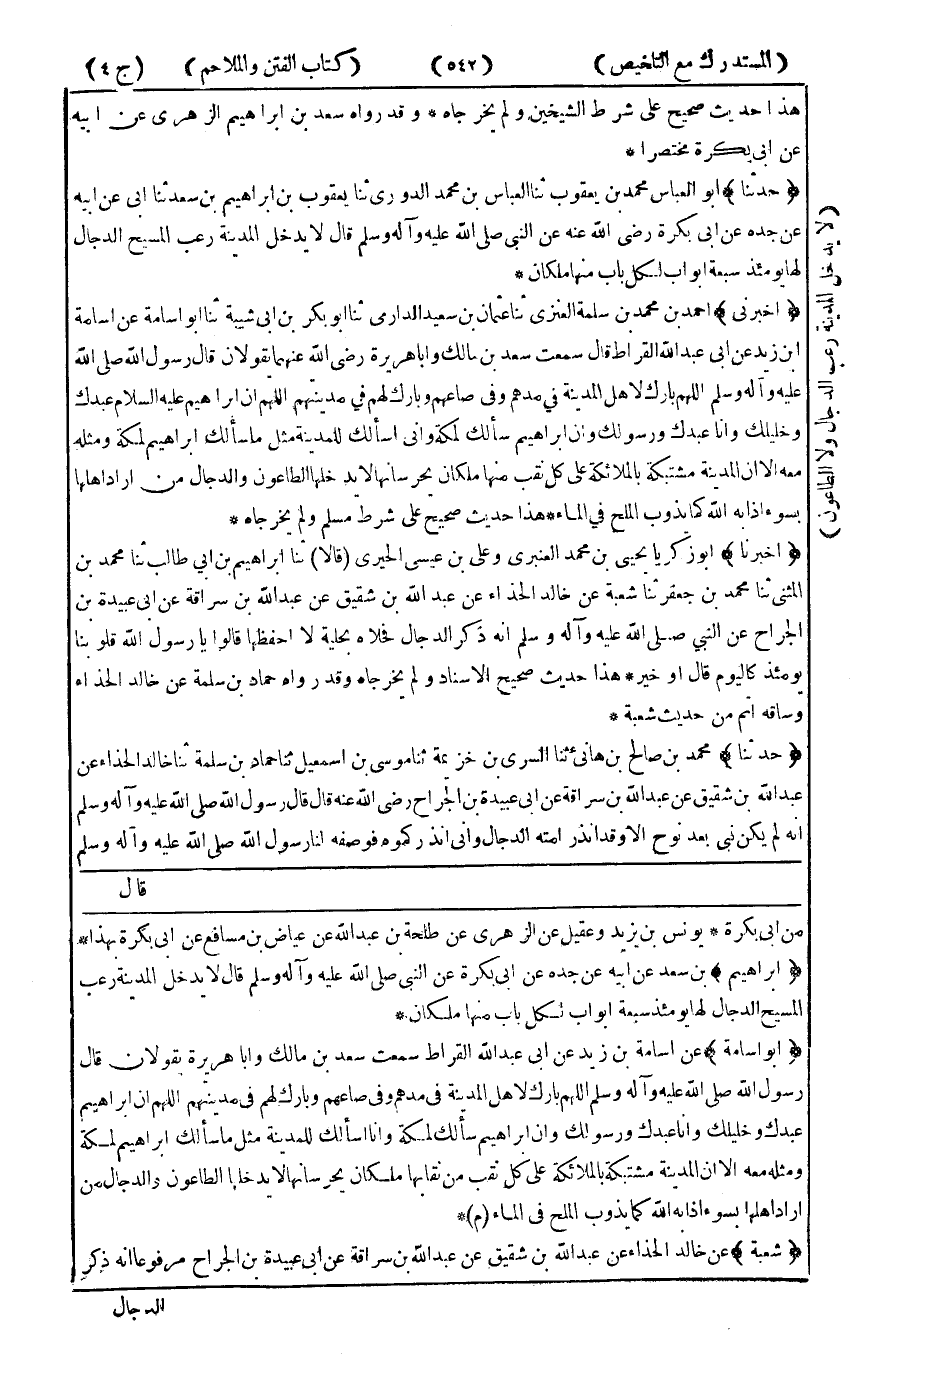 (المستدرك مع التلخيص) (٥٤٢) (كتاب الفتن والملاحم) (ج ٤)
هذا حديث صحيح على شرط الشيخين ولم يخرجاه * وقد رواه سعد بن ابراهيم الزهرى عن ابيه
عن ابى بكرة مختصرا *
﴿ حدثنا ﴾ ابو العباس محمد بن يعقوب ثنا العباس بن محمد الدورى ثنا يعقوب بن ابراهيم بن سعد ثنا ابى عن ابيه
عن جده عن ابى بكرة رضى الله عنه عن النبي صلى الله عليه وآله وسلم قال لا يدخل المدينة رعب المسيح الدجال
لها يومئذ سبعة ابواب لكل باب منها ملكان *
﴿ اخبرنى ﴾ احمد بن محمد بن سلمة العنزى ثنا عثمان بن سعيد الدارمى ثنا ابو بكر بن ابى شيبة ثنا ابو اسامة عن اسامة
ابن زيد عن ابى عبد الله القراط قال سمعت سعد بن مالك وابا هريرة رضى الله عنهما يقولان قال رسول الله صلى الله
عليه وآله وسلم اللهم بارك لاهل المدينة في مدهم وفى صاعهم وبارك لهم في مدينتهم اللهم ان ابراهيم عليه السلام عبدك
وخليلك وانا عبدك ورسولك وان ابراهيم سألك لمكة وانى اسألك للمدينة مثل ما سألك ابراهيم لمكة ومثله
معه الا ان المدينة مشتبكة بالملائكة على كل نقب منها ملكان يحرسانها لا يدخلها الطاعون والدجال من ارادها
بسوء اذابه الله كما يذوب الملح في الماء * هذا حديث صحيح على شرط مسلم ولم يخرجاه *
﴿ اخبرنا ﴾ ابو زكريا يحيى بن محمد العنبرى وعلى بن عيسى الحيرى (قالا) ثنا ابراهيم بن ابي طالب ثنا محمد بن
المثنى ثنا محمد بن جعفر ثنا شعبة عن خالد الحذاء عن عبد الله بن شقيق عن عبد الله بن سراقة عن ابى عبيدة بن
الجراح عن النبي صلى الله عليه وآله وسلم انه ذكر الدجال فحلاه بحلية لا احفظها قالوا يا رسول الله قلوبنا
يومئذ كاليوم قال او خير * هذا حديث صحيح الاسناد ولم يخرجاه وقد رواه حماد بن سلمة عن خالد الحذاء
وساقه اتم من حديث شعبة *
﴿ حدثنا ﴾ محمد بن صالح بن هانئ ثنا السرى بن خزيمة ثنا موسى بن اسمعيل ثنا حماد بن سلمة ثنا خالد الحذاء عن
عبد الله بن شقيق عن عبد الله بن سراقة عن ابى عبيدة بن الجراح رضى الله عنه قال قال رسول الله صلى الله عليه وآله وسلم
انه لم يكن نبى بعد نوح الا وقد انذر امته الدجال وانى انذركموه فوصفه لنا رسول الله صلى الله عليه وآله وسلم
قال
من ابى بكرة * يونس بن يزيد وعقيل عن الزهرى عن طلحة بن عبد الله عن عياض بن مسافع عن ابى بكرة بهذا *
﴿ ابراهيم ﴾ بن سعد عن ابيه عن جده عن ابى بكرة عن النبي صلى الله عليه وآله وسلم قال لا يدخل المدينة رعب
المسيح الدجال لها يومئذ سبعة ابواب لكل باب منها ملكان *
﴿ ابو اسامة ﴾ عن اسامة بن زيد عن ابى عبد الله القراط سمعت سعد بن مالك وابا هريرة يقولان قال
رسول الله صلى الله عليه وآله وسلم اللهم بارك لاهل المدينة فى مدهم وفى صاعهم وبارك لهم فى مدينتهم اللهم ان ابراهيم
عبدك وخليلك وانا عبدك ورسولك وان ابراهيم سألك لمكة وانا اسألك للمدينة مثل ما سألك ابراهيم لمكة
ومثله معه الا ان المدينة مشتبكة بالملائكة على كل نقب من نقابها ملكان يحرسانها لا يدخلها الطاعون والدجال من
اراد اهلها بسوء اذابه الله كما يذوب الملح فى الماء (م) *
﴿ شعبة ﴾ عن خالد الحذاء عن عبد الله بن شقيق عن عبد الله بن سراقة عن ابى عبيدة بن الجراح مرفوعا انه ذكر
الدجال
(لا يدخل المدينة رعب الدجال ولا الطاعون)